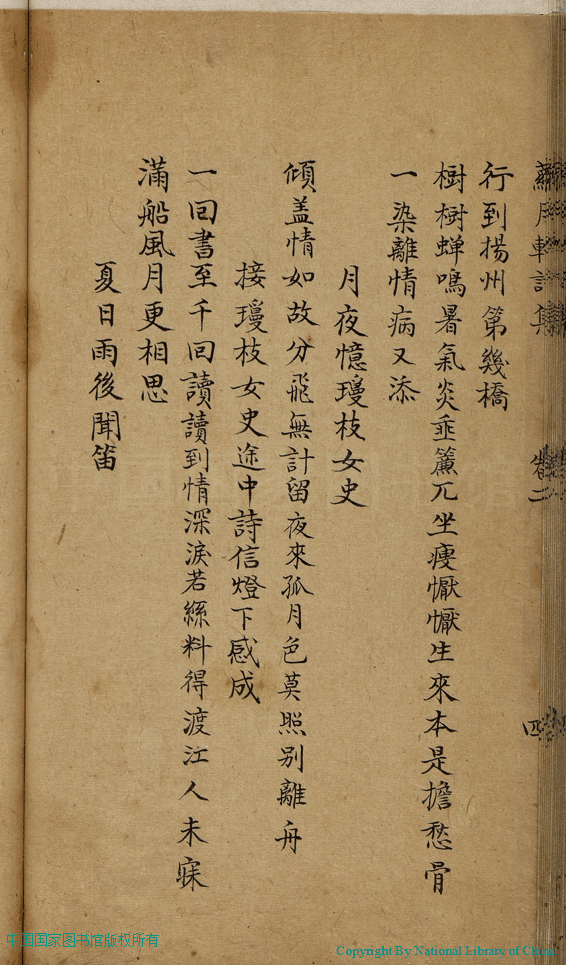 行到揚州第幾橋
樹樹蟬鳴暑氣炎垂簾兀坐瘦懨懨生來本是擔愁骨
一染離情病又添
月夜憶瓊枝女史
傾盖情如故分飛無計留夜來孤月色莫照別離舟
接瓊枝女史途中詩信燈下感成
一回書至千回讀讀到情深淚若絲料得渡江人未寐
滿船風月更相思
夏日雨後聞笛
月軒詩集
卷二
四
中国国家图书馆版权所有
Copyright By National Library of China